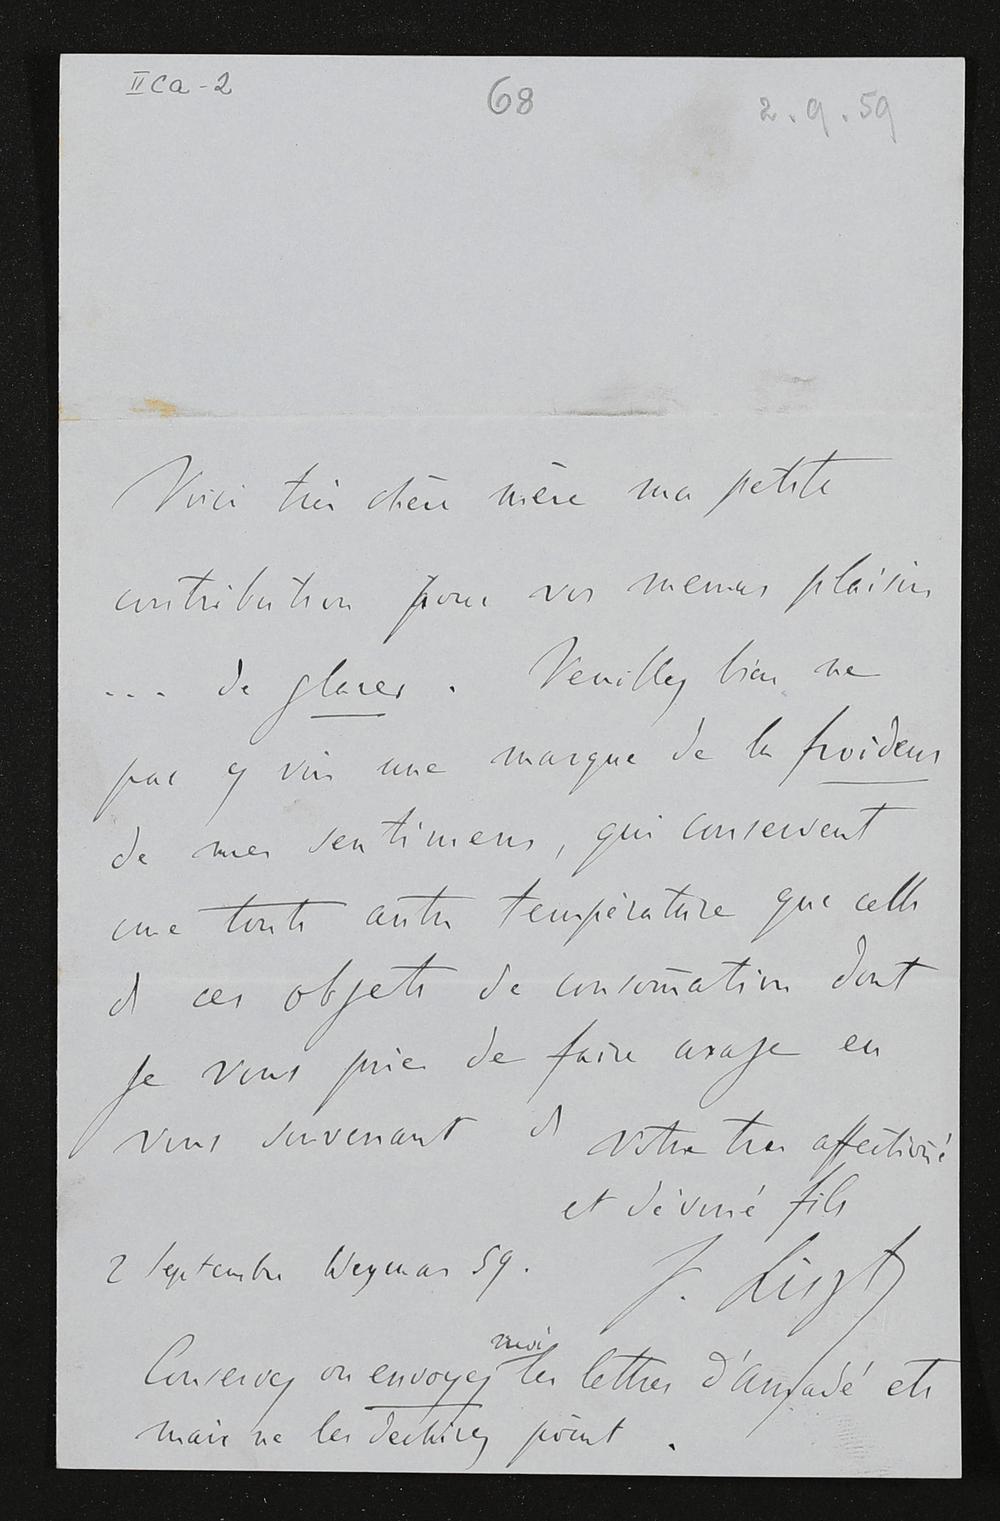 IICa-2
68
2.9.59
Voici très chère mère ma petite
contribution pour vos menus plaisirs
... de glaces. Veuillez bien ne
pas y voir une marque de la froideur
de mes sentimens, qui conservent
une toute autre température que celle
de ces objets de consom̄ation dont
je vous prie de faire usage en
vous souvenant de votre très affectioné
et dévoué fils
2 Septembre Weymar 59. F. Liszt
moi
Conservez ou envoyez les lettres d'amadé etc
mais ne les dechirez point.